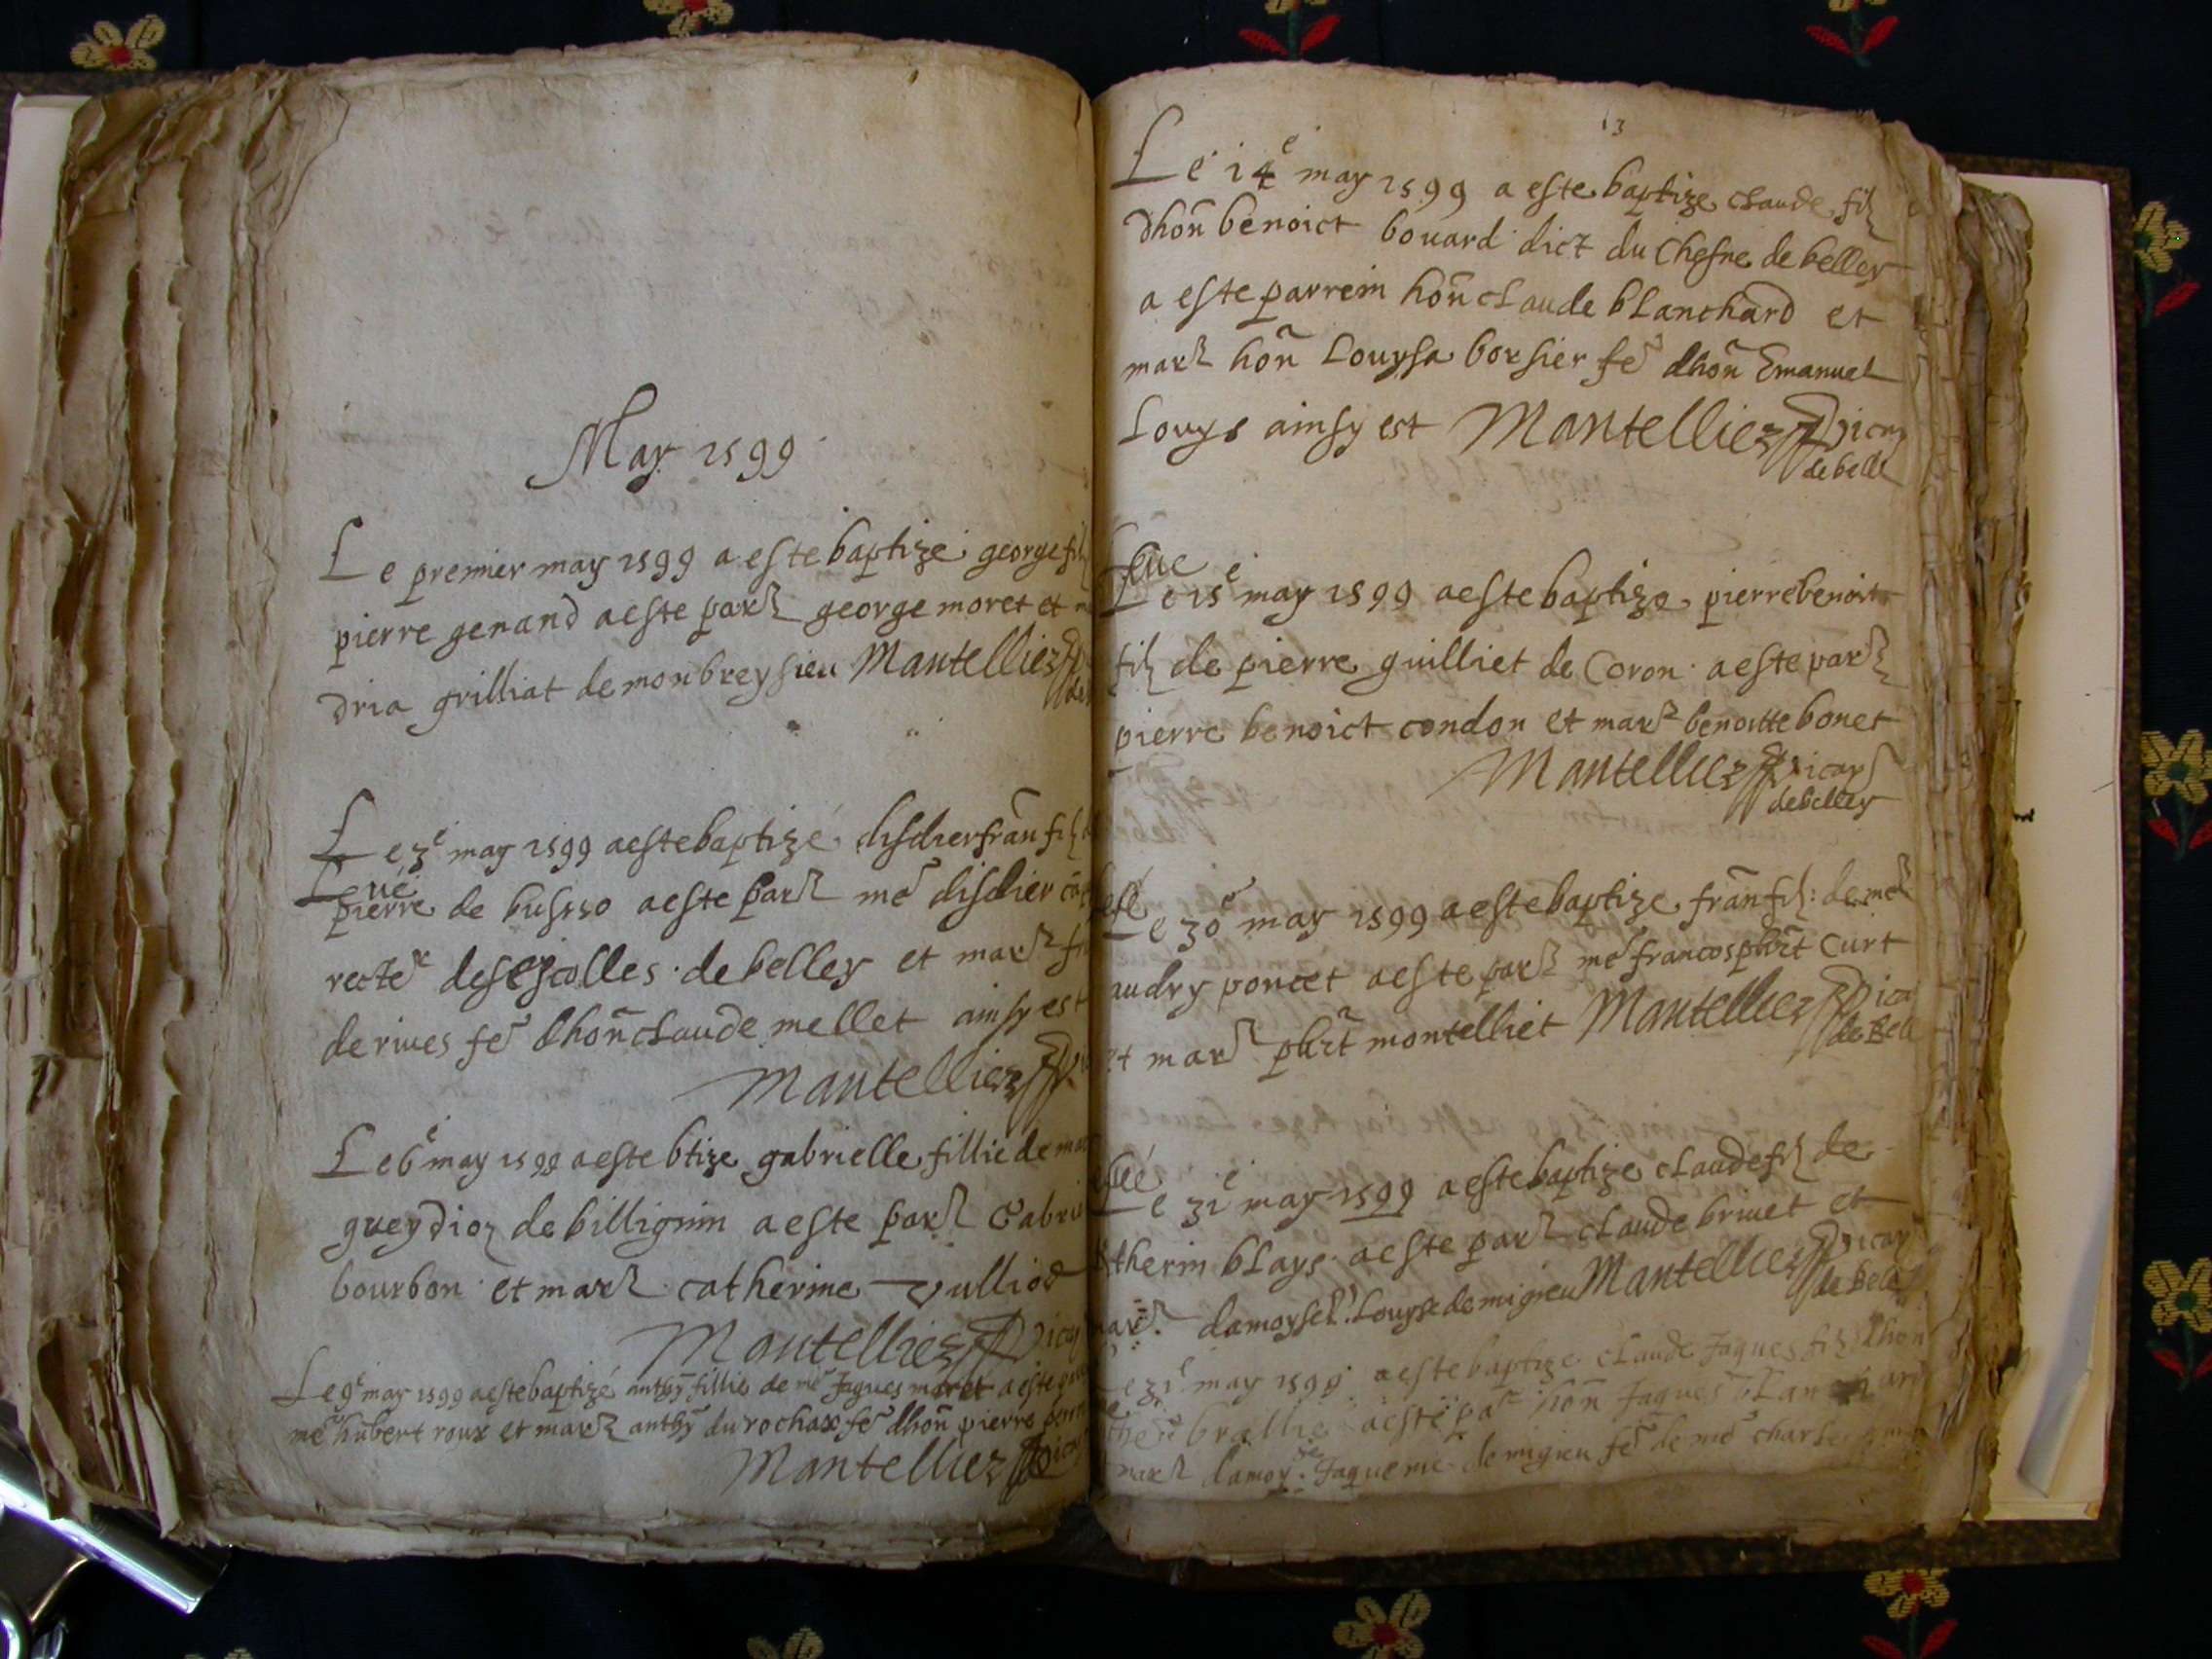 May 1599
Le premier may 1599 a este baptize george filz
pierre genand a este parr george moret et
dria grilliat de monbreysieu Mantellier
de
Le 3e may 1599 a este baptizé disdier fran filz
Leué
pierre de busso a este parr me disdier
recter des escolles de belley et marr
de rives fe dhon claude mellet ainsy est
Mantellier
Le 6e may 1599 a este btize gabrielle fillie de
gueydioz de billignin a este parr Gabri
bourbon et marr catherine vulliod
Mantellier vicar
Le 9e may 1599 a este baptizé anthy fillie de me Jaques moret a este
me hubert roux et marr anthy du rochax fe dhon pierre
Mantellier vicar
13
Le 14e may 1599 a este baptize claude filz
dhon benoict bouard dict du Chesne de belley
a este parrein hon claude blanchard et
marr hon Louysa borsier fe dhon Emanuel
Louys ainsy est Mantellier vicar
de belle
Leue
Le 15e may 1599 a este baptize pierre benoit
filz de pierre guilliet de Coron a este parr
pierre benoict condon et marr benoitte bonet
Mantellier vicar
de belley
e 30e may 1599 a este baptize fran filz de me
audry poncet a este parr me francos phbrt Curt
et marr phbrt montelliet Mantellier vica
de Bell
e 31e may 1599 a este baptize claude filz de
therin blays a este parr claude brivet et
marr damoysell Louyse de migieu Mantellier vicar
de Belle
e 31e may 1599 a este baptize claude Jaques filz dhon
brallie a este par hon Jaques blanchard
marr damoy Jaquemie de migieu fe de me charle